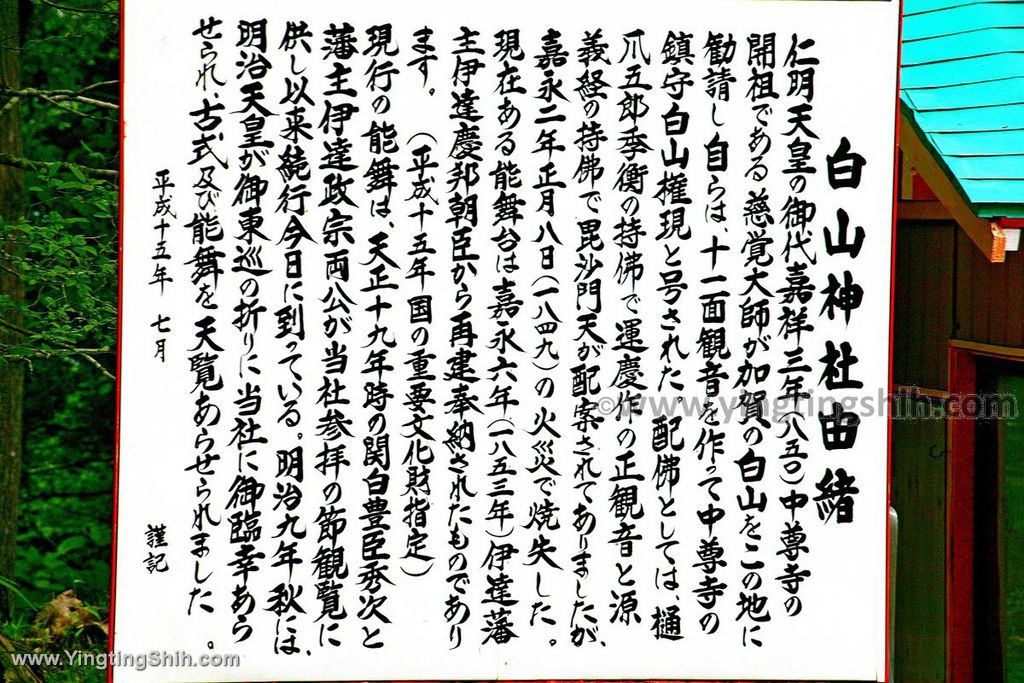 白山神社由緒
仁明天皇の御代嘉祥三年(八五〇)中尊寺の
開祖である慈覚大師が加賀の白山をこの地に
勧請し自らは、十一面観音を作って中尊寺の
鎮守白山権現と号された。配佛としては、樋
爪五郎季衡の持佛で運慶作の正観音と源
義経の持佛で毘沙門天が配案されてありましたが、
嘉永二年正月八日(一八四九)の火災で焼失した。
現在ある能舞台は嘉永六年(一八五三年)伊達藩
主伊達慶邦朝臣から再建奉納されたものであり
ます。(平成十五年国の重要文化財指定)
現行の能舞は、天正十九年時の関白豊臣秀次と
藩主伊達政宗両公が当社参拝の節観覧に
供し以来続行今日に到っている。明治九年秋には、
明治天皇が御東巡の折りに当社に御臨幸あら
せられ、古式及び能舞を天覧あらせられました。
平成十五年 七月
謹記
©www.yingtingShih.com
www.YingtingShih.com